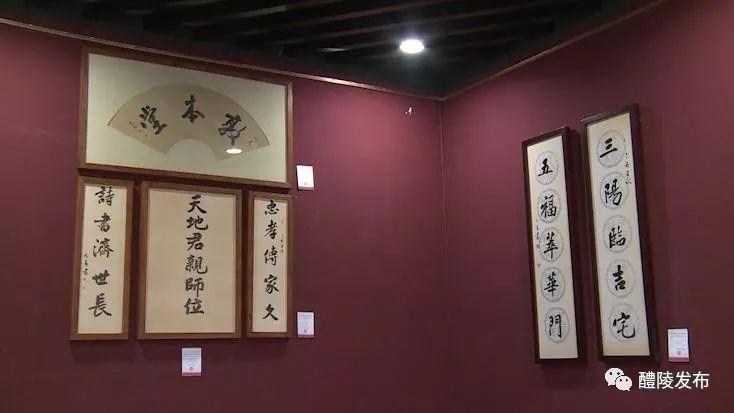 本堂
忠孝傳家久
天地君親師位
詩書濟世長
三陽臨吉宅
五福萃華門
醴陵发布